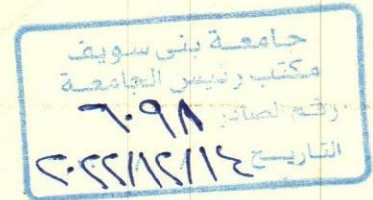 جامعة بنى سويف
مكتب رئيس الجامعة
رقم الصادر ٦٠٩٨
التاريخ ٢٠٢٢/١٢/١٤